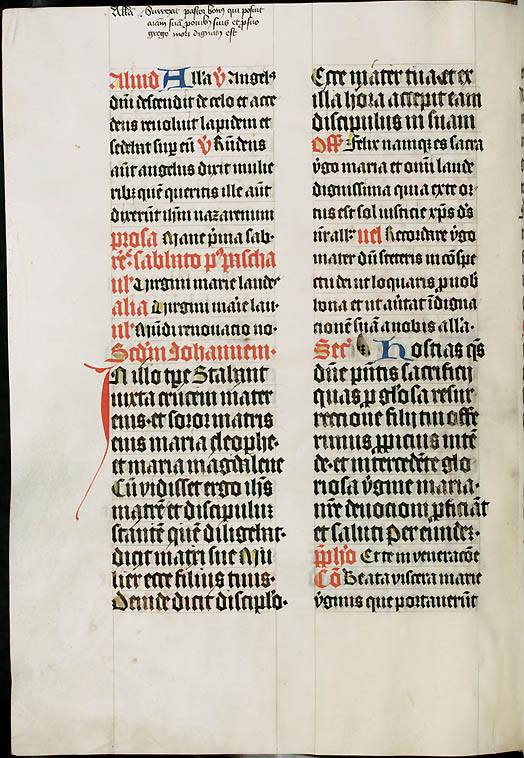 Alla. Surrexit pastor bonus qui posuit
aīam suā p ovibus suis et p suo
grege mori dignatus est
Aliud Alla ℣ Angelꝰ
dn̄i descendit de celo et acce
dens revoluit lapidem et
sedebat sup eū ℣ Rn̄dens
aūt angelus dixit mulie
ribꝫ quē queritis ille aūt
dixerūt ihm̄ nazarenum
prosa Mane pͥma sab-
Virgini marie laudes
alia Virgini marie lau-
Mūdi renovatio no-
Scdm̄ Johannem.
In illo tp̄e Stabant
iuxta crucem mater
eius. et soror matris
eius maria cleophe.
et maria magdalene
Cū vidisset ergo ih̄s
matrē et discipulū
stantē quē diligebat.
dicit matri sue Mu
lier ecce filius tuus.
Deinde dicit discipl̓o.
Ecce mater tua et ex
illa hora accepit eam
discipulus in suam
Off Felix namqꝫ es sacra
v̓go maria et om̄i laude
dignissima quia ex te or-
tus est sol iusticie xp̄s dꝰs
nr̄ allꝰ vel Recordare v̓go
mater dum steteris in cōspe
ctu dei ut loquaris p nob
bona et ut av̓tat īdigna
cionē suā a nobis alla.
Secͬ Hostias qs̄
dn̄e pn̄tis sacrificij
quas p gl̓osa resur
rectione filij tui offe
rimus ppicius intē
de. et intercedēte glo
riosa v̓gine maria.
nr̄e devocioni pficiāt
et saluti Per eunder.
Et te in veneracōe
Cō Beata viscera marie
v̓ginis que portaverūt